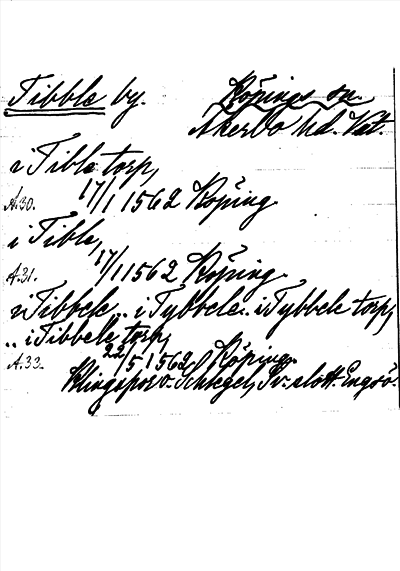 Tibble by. Köpings sn.
Åkerbo hd. Vst.
i Tible torp,
A.30. 17/1 1562 Köping.
i Tible,
A.31. 17/1 1562 Köping.
i Tibbele .. i Tybbele .. i Tybbele torp,
.. i Tibbele torp,
A.33. 22/5 1562 Köping.
Klingspor o. Schlegel, Sv. slott. Engsö.